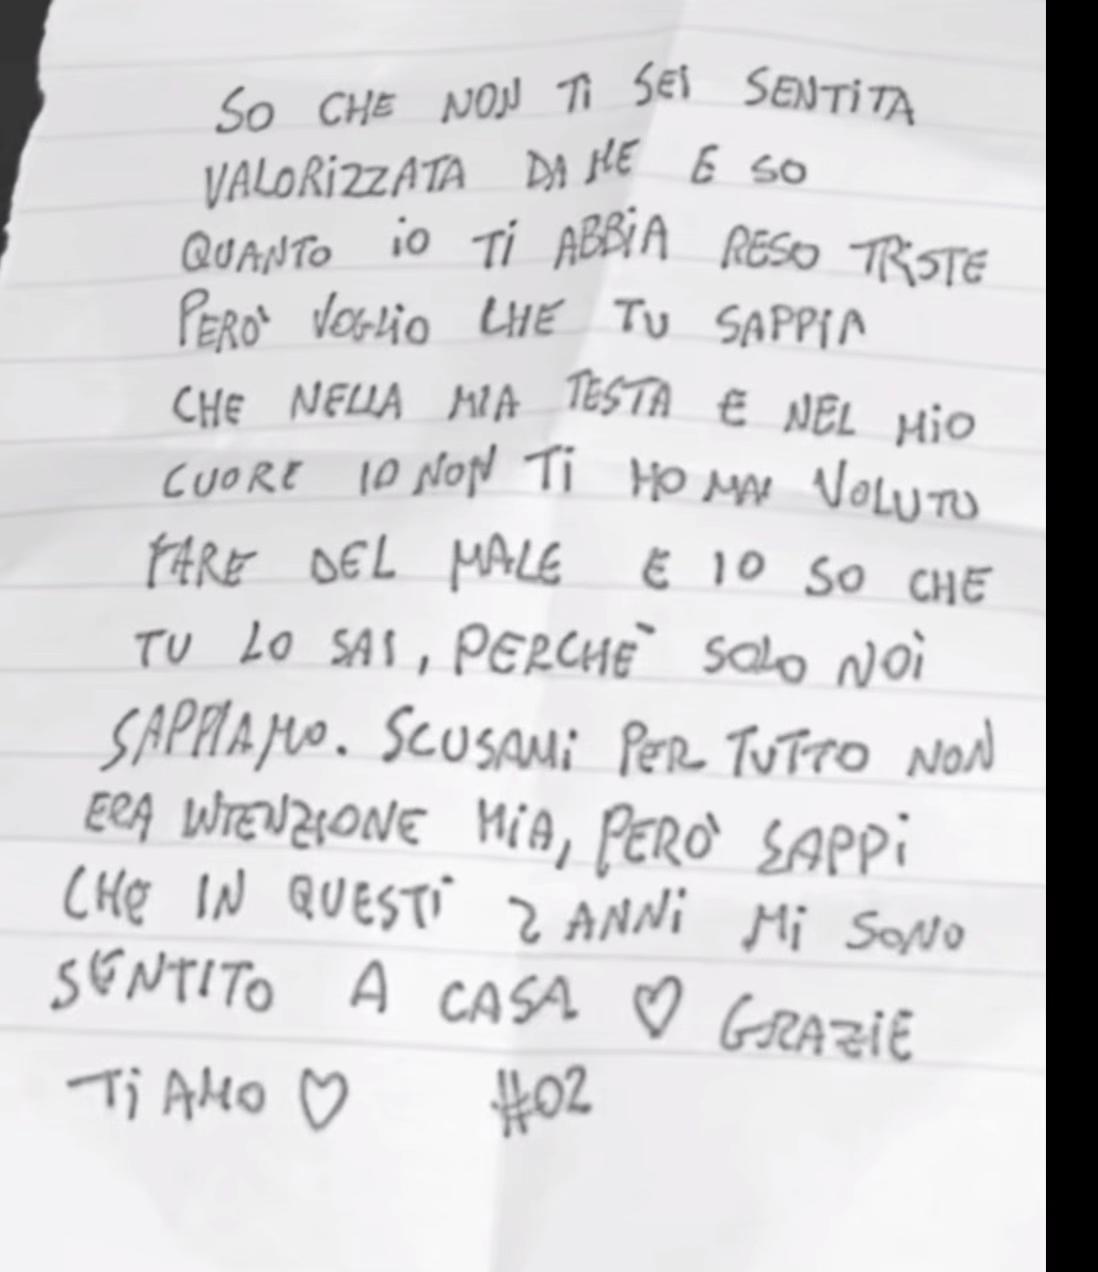 SO CHE NON Ti SEi SENTiTA
VALORiZZATA DA ME E SO
QUANTO iO Ti ABBiA RESO TRiSTE
PERÒ VOGLiO CHE TU SAPPIA
CHE NELLA MIA TESTA E NEL MiO
CUORE IO NON Ti HO MAI VOLUTO
FARE DEL MALE E IO SO CHE
TU LO SAI, PERCHÈ SOLO NOi
SAPPIAMO. SCUSAMi PER TUTTO NON
ERA INTENZIONE MiA, PERÒ SAPPi
CHE IN QUESTi 2 ANNi Mi SONO
SENTITO A CASA ♡ GRAZiE
Ti AMO ♡ #02